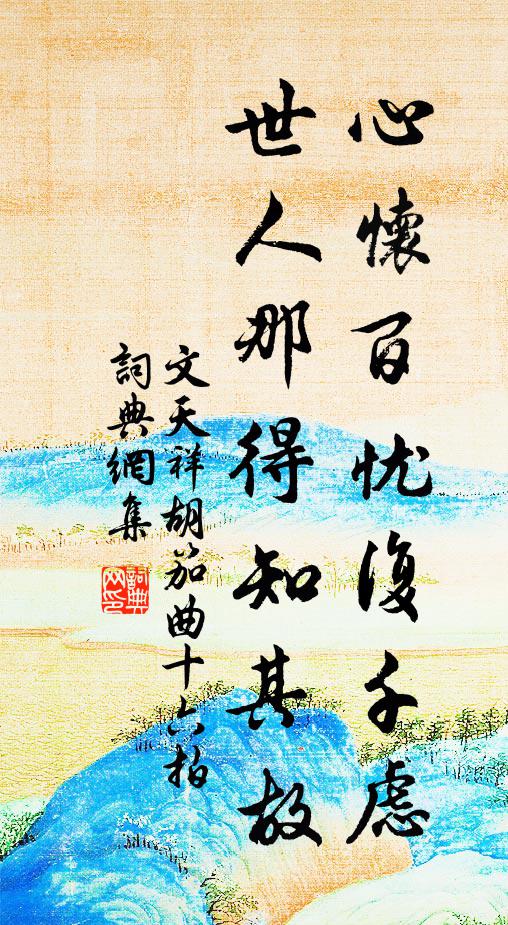 心懷百忧復千慮
世人那得知其故
文天祥胡笳曲十六拍
詞典網集
詞典网印